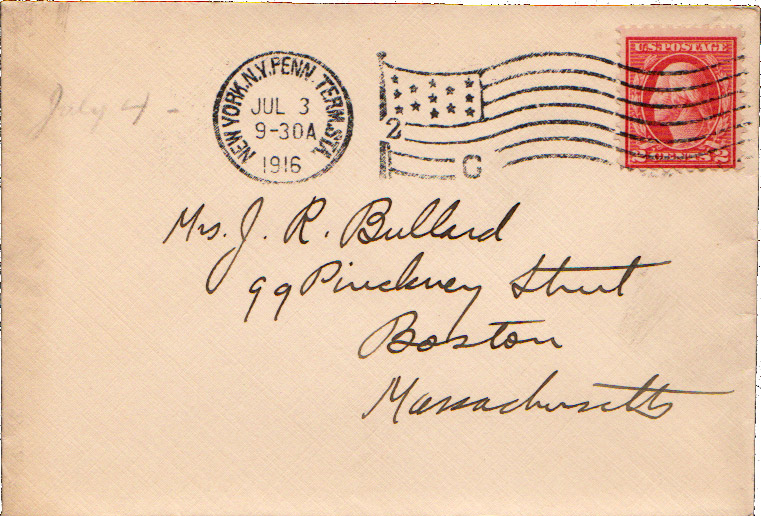 U.S. POSTAGE
NEW YORK, N.Y. PENN. TERM. STA.
JUL 3
9-30A
1916
2
C
2 2
July 4 -
Mrs. J. R. Bullard
99 Pinckney Street
Boston
Massachusetts